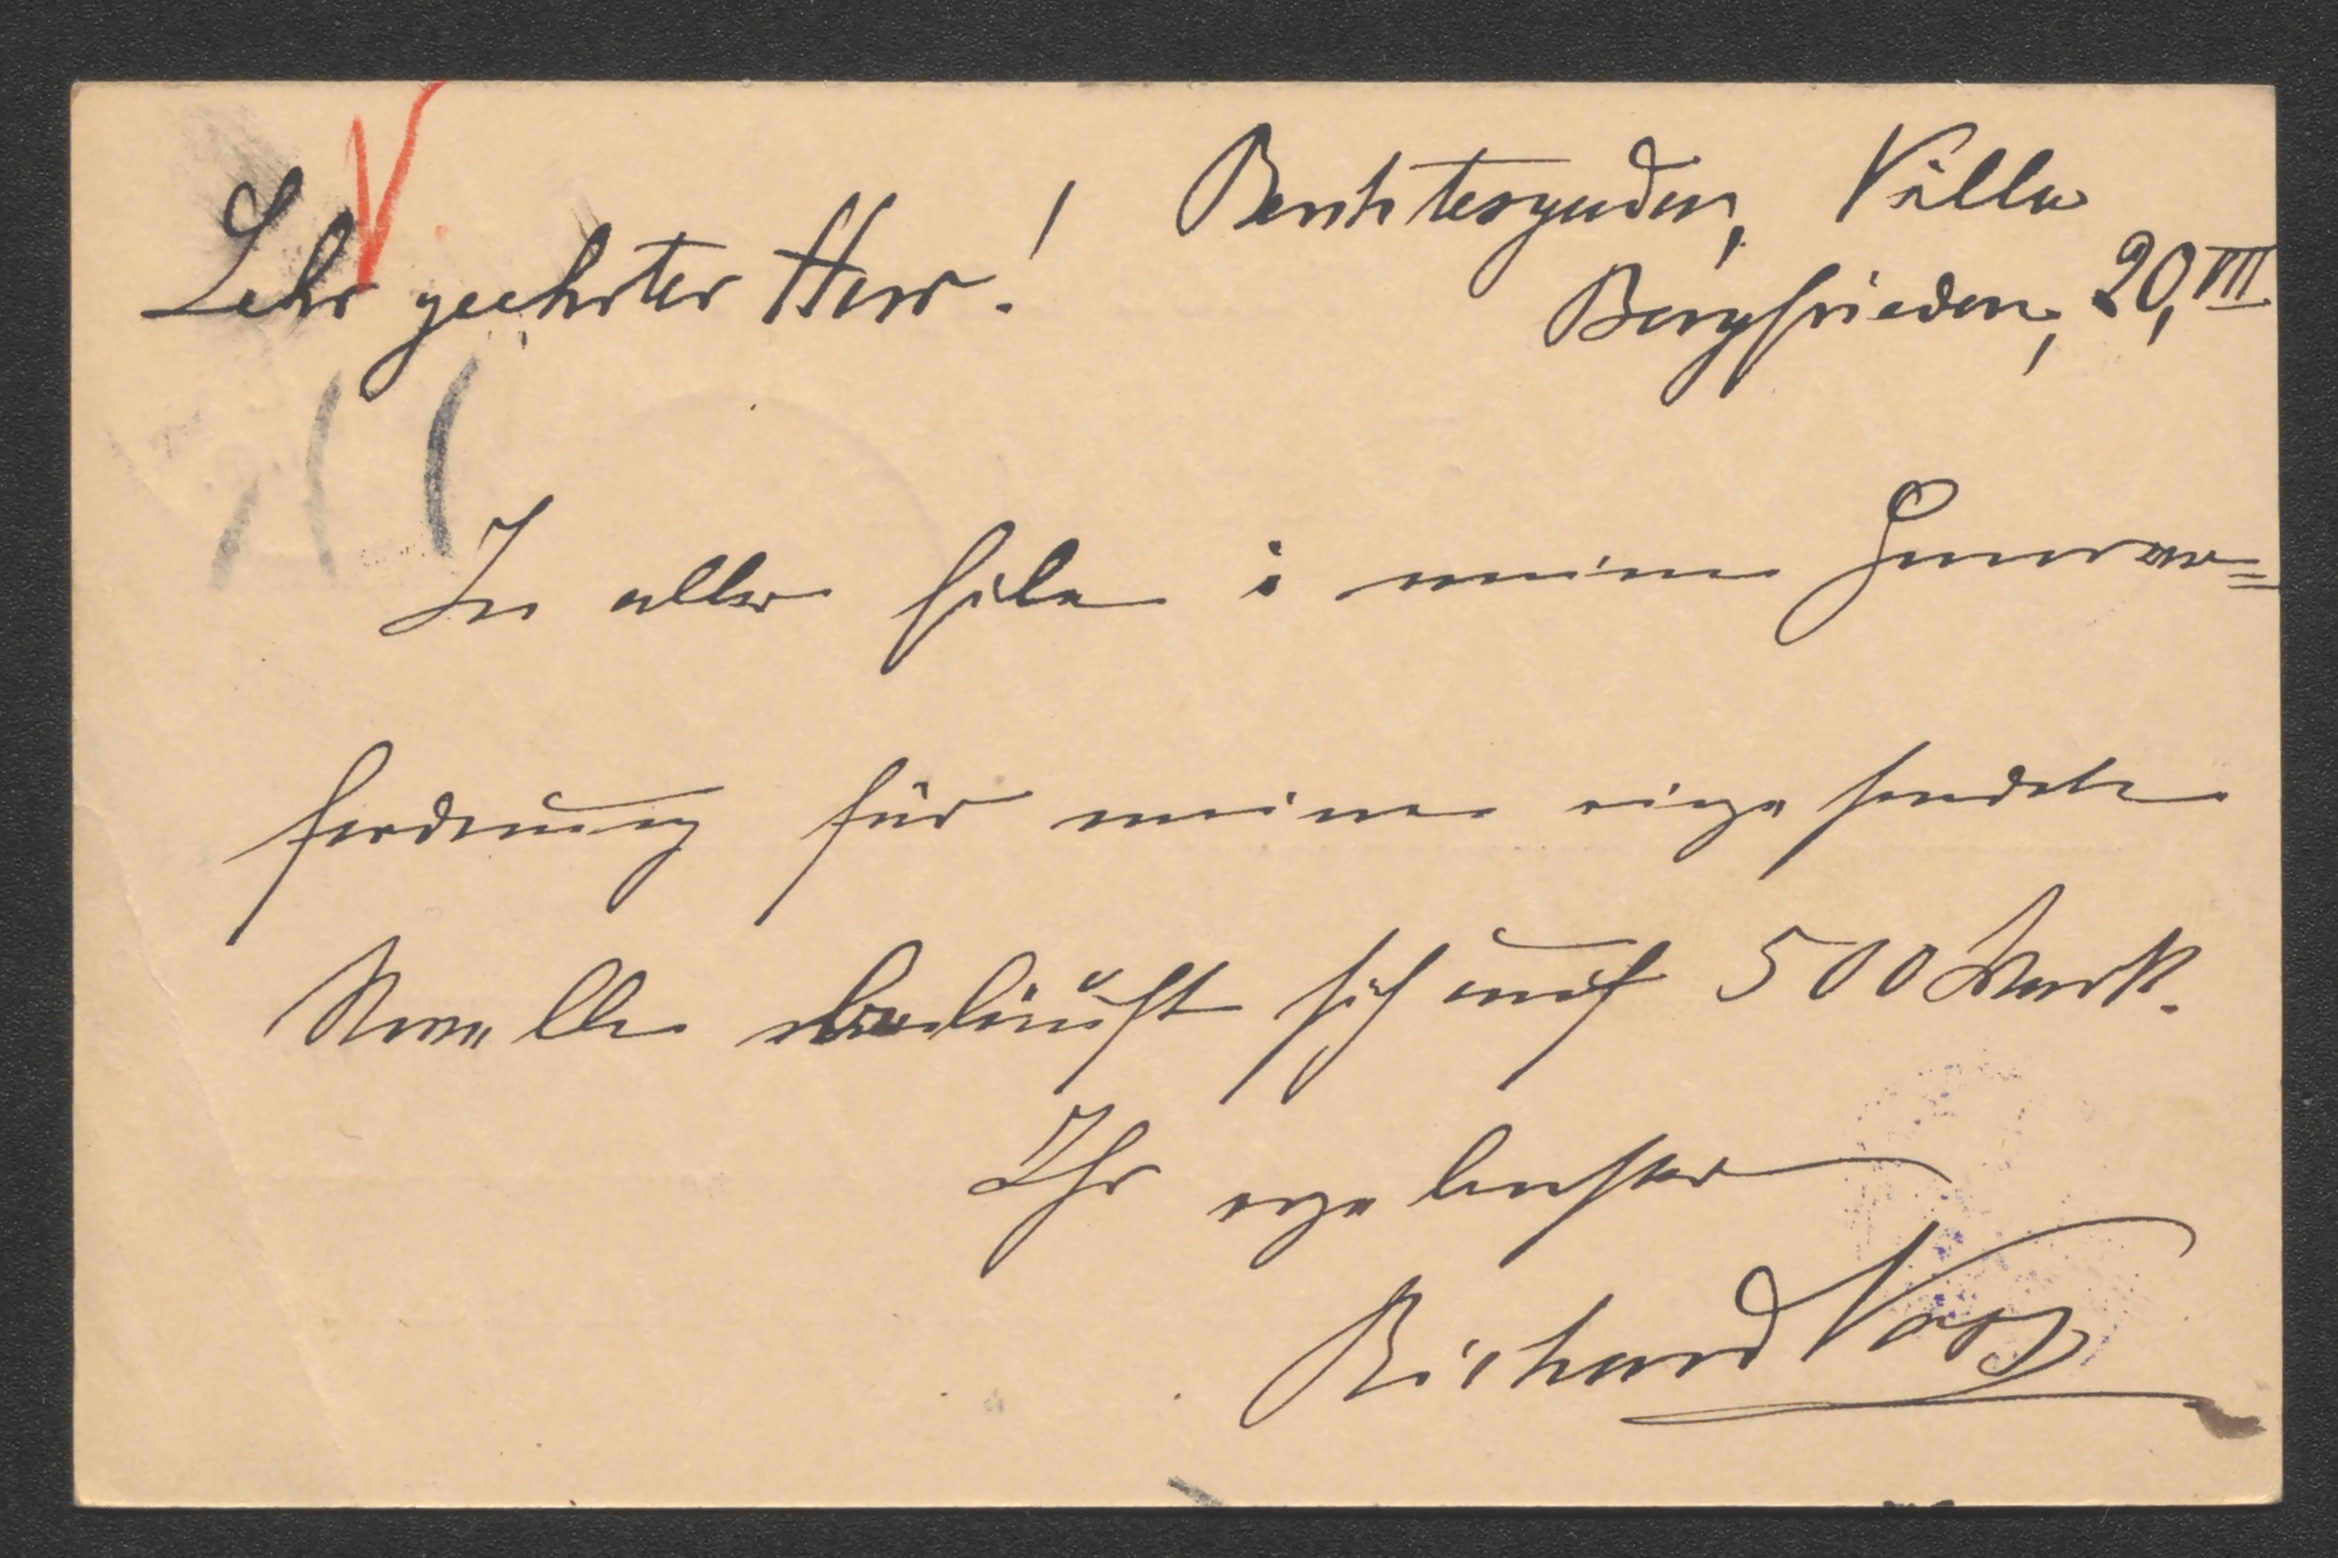 Berchtesgaden, Villa
Bergfrieden, 20, VIII
Sehr geehrter Herr!
In aller Eile: meine Honorar=
forderung für meine eingesendete
Novelle beläuft sich auf 500 Mark.
Ihr ergebenster
Richard Voß